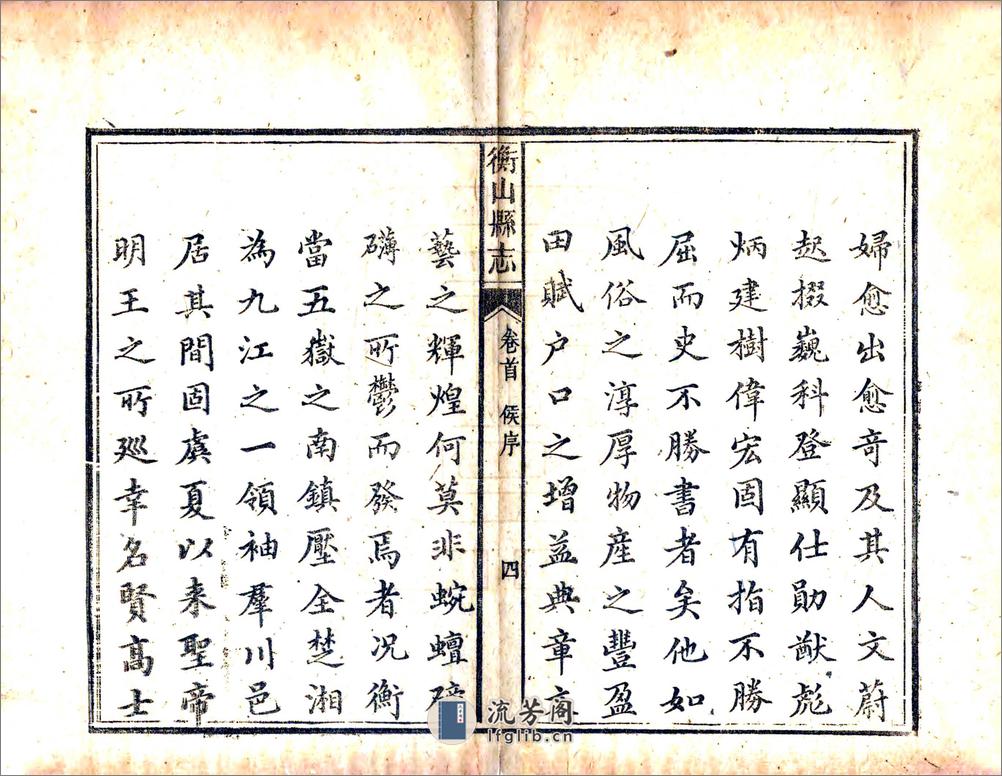 婦愈出愈奇及其人文蔚
起掇巍科登顯仕勛猷彪
炳建樹偉宏固有指不勝
屈而史不勝書者矣他如
風俗之淳厚物產之豐盈
田賦户口之增益典章
衡山縣志
卷首 侯序 四
藝之輝煌何莫非蜿蟺
礴之所鬱而發焉者况衡
當五嶽之南鎮壓全楚湘
為九江之一領袖羣川邑
居其間固虞夏以来聖帝
明王之所廵幸名賢高士
流芳阁
lfglib.cn